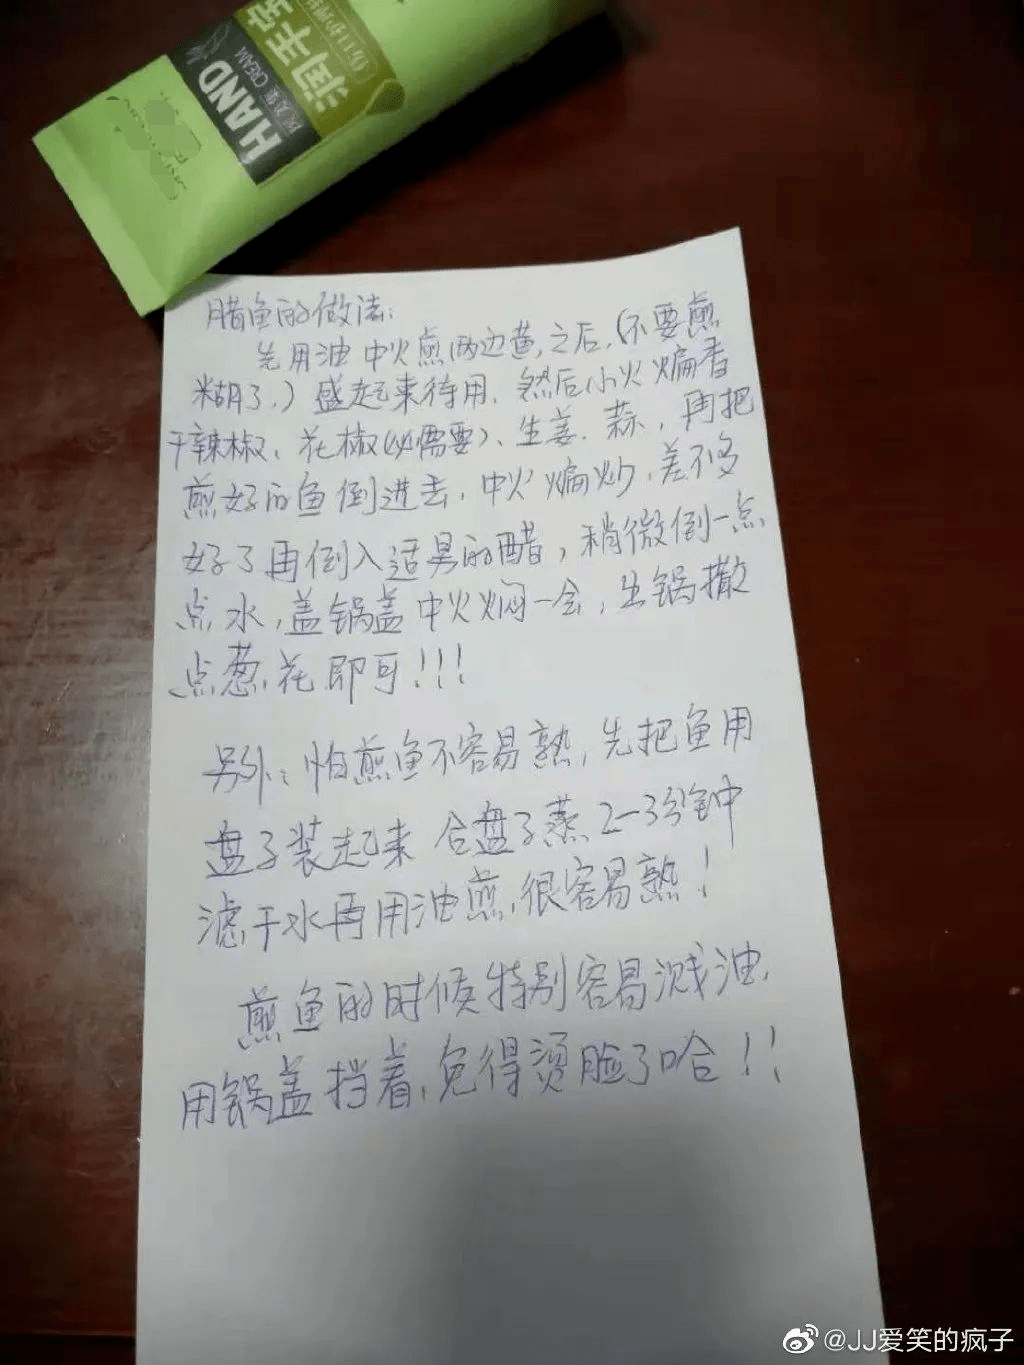 润手
HAND
CREAM
腊鱼的做法:
先用油中火煎两边黄,之后,(不要煎
糊了,)盛起来待用,然后小火煸香
干辣椒、花椒(必需要)、生姜、蒜,再把
煎好的鱼倒进去,中火煸炒,差不多
好了再倒入适量的醋,稍微倒一点
点水,盖锅盖中火焖一会,出锅撒
点葱花即可!!!
另外:怕煎鱼不容易熟,先把鱼用
盘子装起来 合盘子蒸2-3分钟
滤干水再用油煎,很容易熟!
煎鱼的时候特别容易溅油,
用锅盖挡着,免得烫脸了哈!!
@JJ爱笑的疯子